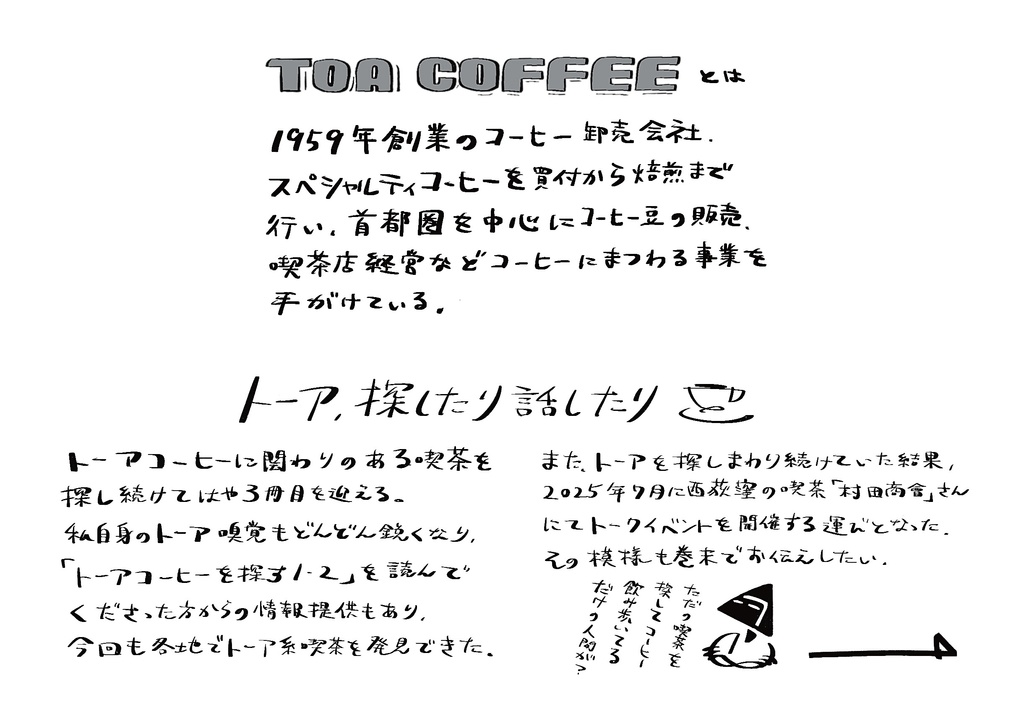 TOA COFFEE とは
1959年創業のコーヒー卸売会社.
スペシャルティコーヒーを買付から焙煎まで
行い、首都圏を中心にコーヒー豆の販売、
喫茶店経営などコーヒーにまつわる事業を
手がけている.
トーア,探したり話したり
トーアコーヒーに関わりのある喫茶を
探し続けてはや3冊目を迎える。
私自身のトーア嗅覚もどんどん鋭くなり、
「トーアコーヒーを探す1-2」を読んで
くださった方からの情報提供もあり、
今回も各地でトーア系喫茶を発見できた.
また、トーアを探しまわり続けていた結果,
2025年7月に西荻窪の喫茶「村田商會」さん
にてトークイベントを開催する運びとなった.
その模様も巻末でお伝えしたい.
ただの喫茶を
探してコーヒー
飲み歩いてる
だけの人間が?